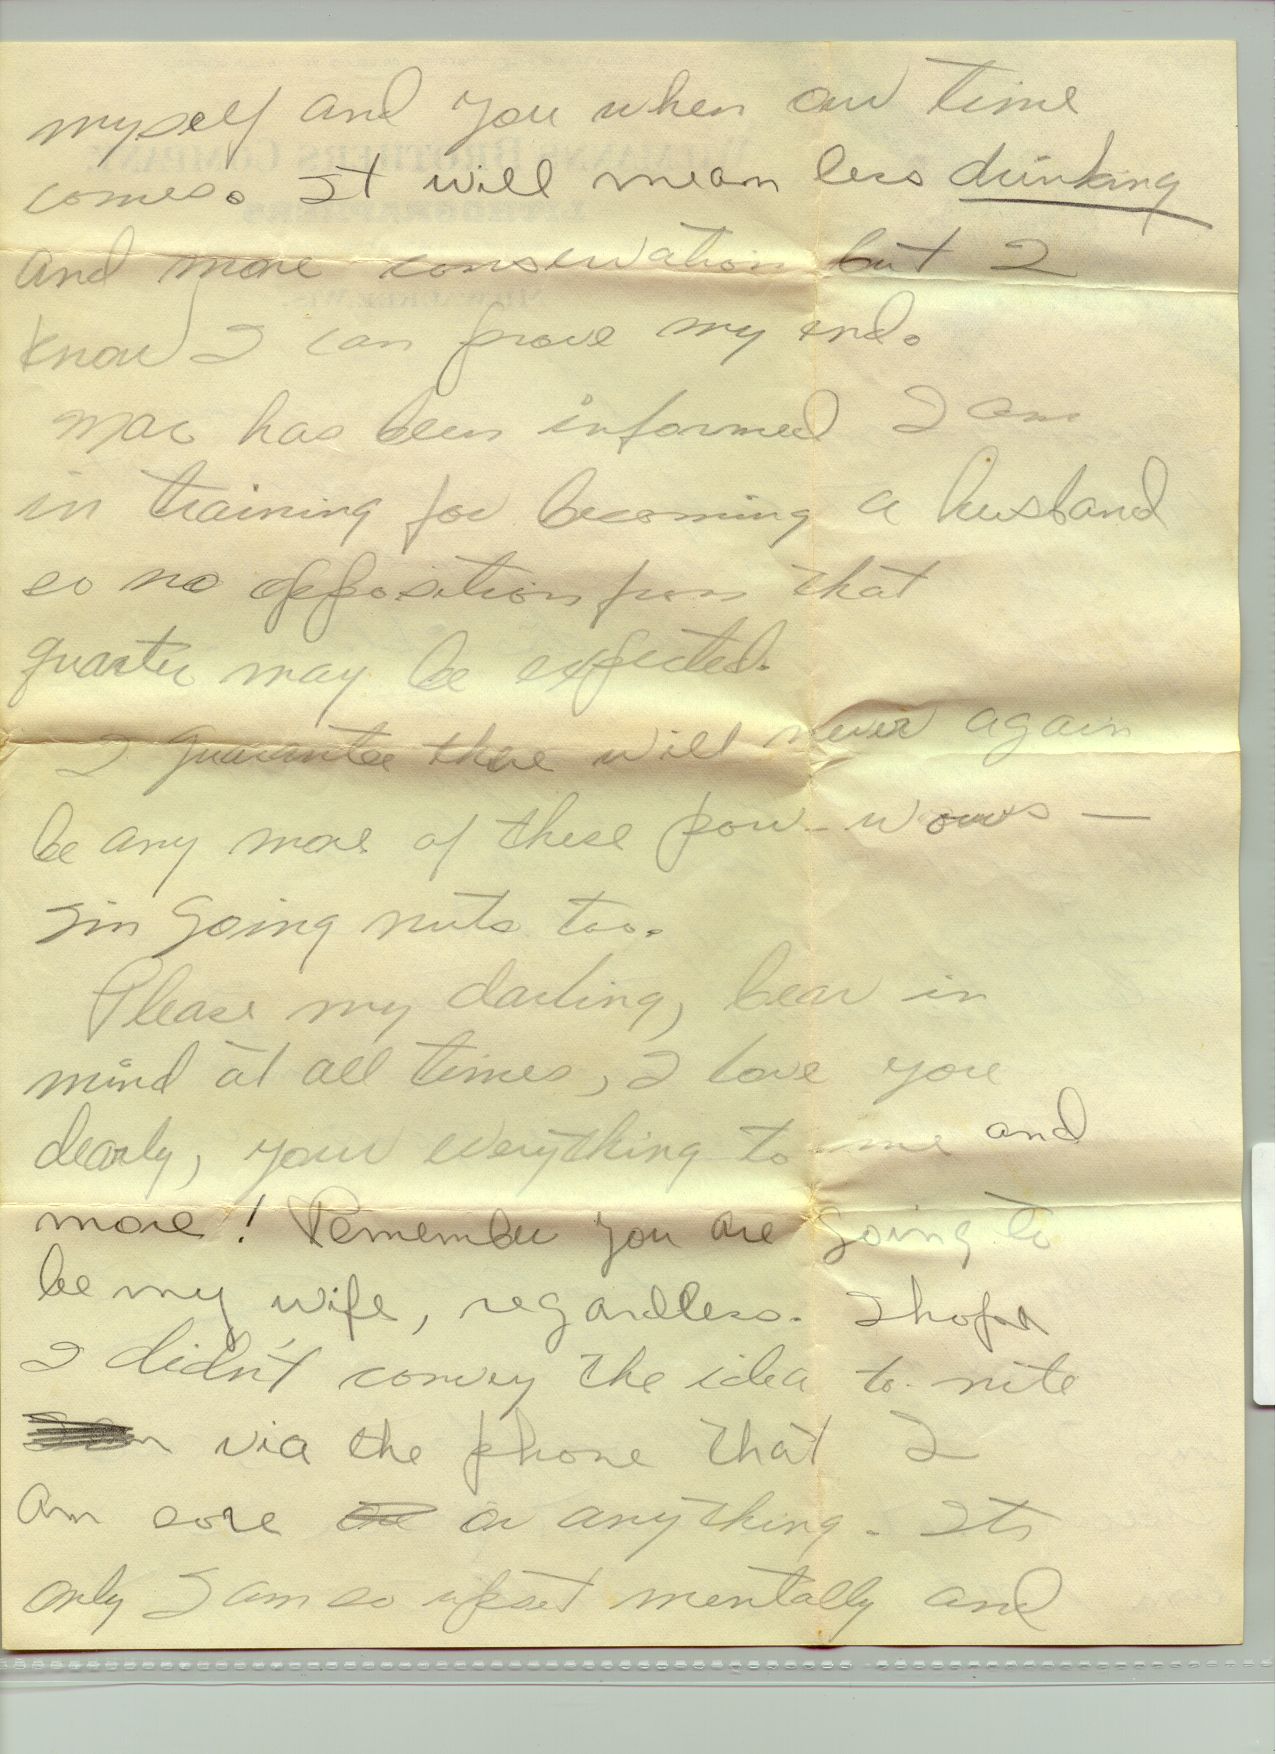 myself and you when our time
comes. It will mean less drinking
and more conservation but I
know I can prove my end.
Mac has been informed I am
in training for becoming a husband
so no opposition from that
quarter may be expected.
I guarantee there will never again
be any more of these pow-wows —
I'm going nuts too.
Please my darling, bear in
mind at all times, I love you
dearly, your everything to me and
more! Remember you are going to
be my wife, regardless. I hope
I didn't convey the idea to nite
via the phone that I
am sore or anything. Its
only I am so upset mentally and